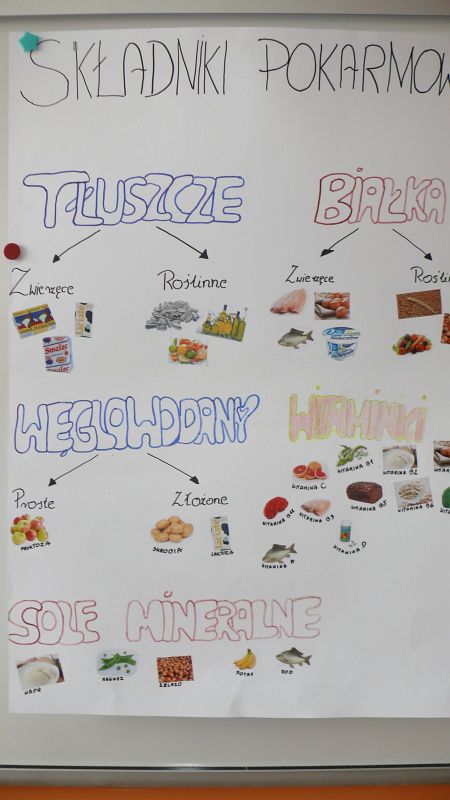 SKŁADNIKI POKARMOW
TŁUSZCZE
BIAŁKA
Zwierzęce
Roślinne
Zwierzęce
Rośli
Smalec
WĘGLOWODANY
WITAMINKI
Proste
Złożone
FRUKTOZA
SKROBIA
LAKTOZA
WITAMINA C
WITAMINA B1
WITAMINA B2
WITAMINA B3
WITAMINA B5
WITAMINA B6
WITAMINA A
WITAMINA D
SOLE MINERALNE
WAPŃ
MAGNEZ
ŻELAZO
POTAS
JOD